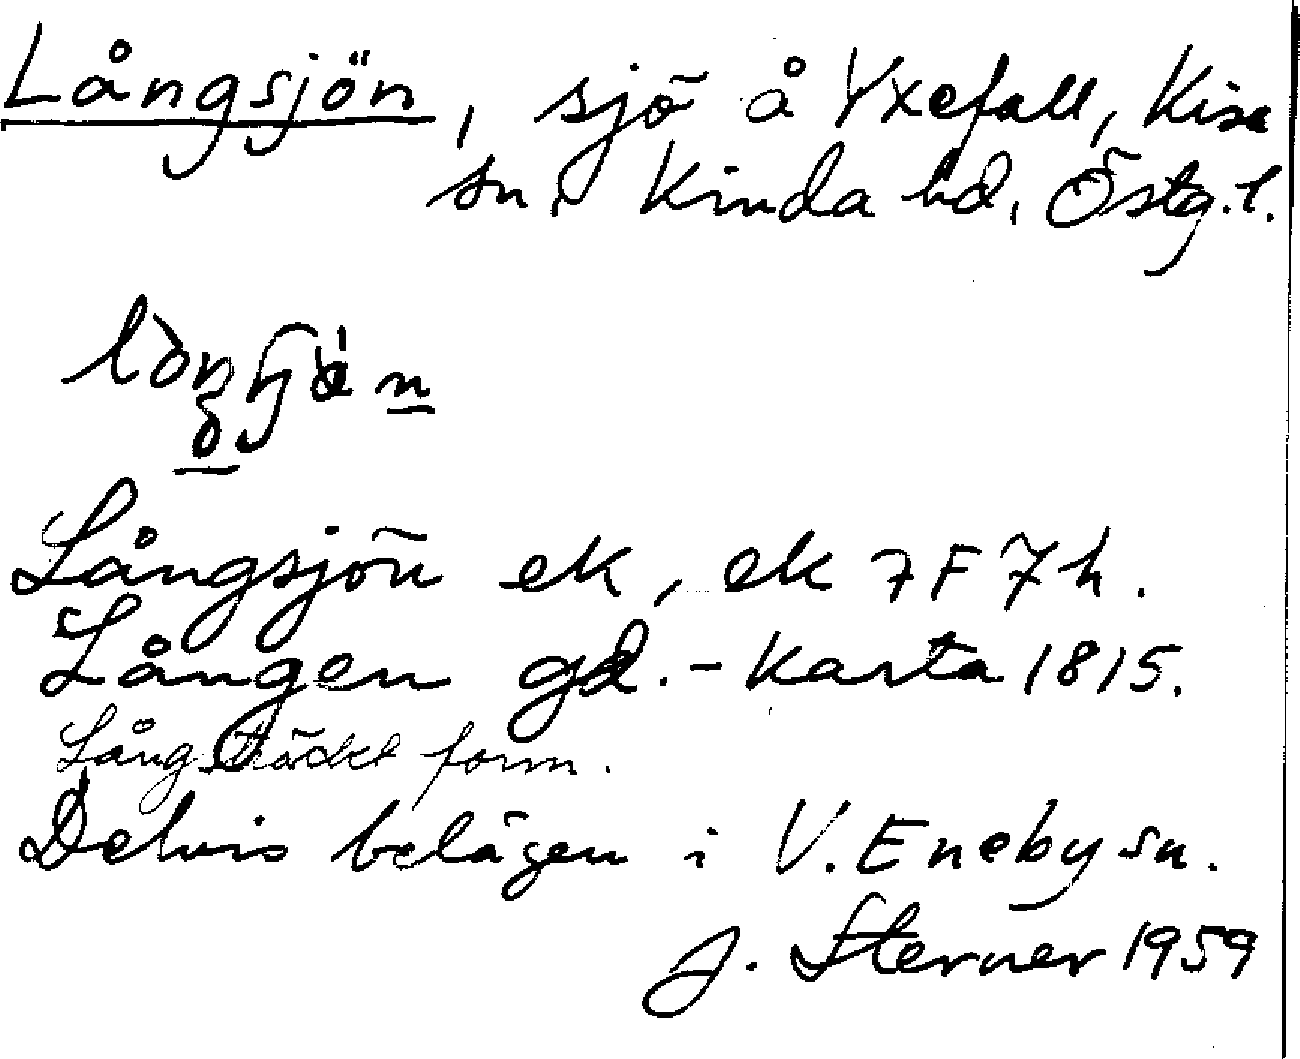 Långsjön, sjö å Yxefall, Kisa
sn, Kinda hd, Östg. l.
Långsjön ek, ek 7F7h.
Lången gd. - Karta 1815.
Långsträckt form.
Delvis belägen i V. Eneby sn.
J. Sterner 1959